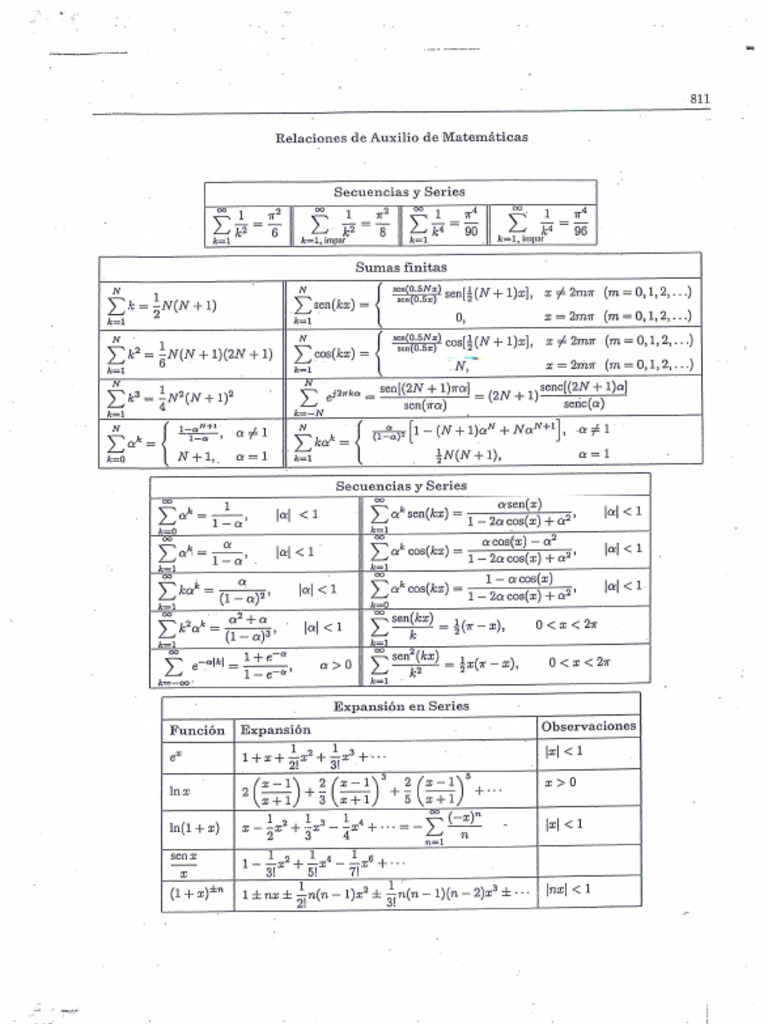 811
Relaciones de Auxilio de Matemáticas
Secuencias y Series
∑_{k=1}^{∞} 1/k² = π²/6 ∑_{k=1, impar}^{∞} 1/k² = π²/8 ∑_{k=1}^{∞} 1/k⁴ = π⁴/90 ∑_{k=1, impar}^{∞} 1/k⁴ = π⁴/96
Sumas finitas
∑_{k=1}^{N} k = 1/2 N(N + 1) ∑_{k=1}^{N} sen(kx) = { sen(0.5Nx)/sen(0.5x) sen[½(N + 1)x], x ≠ 2mπ (m = 0, 1, 2, ...)
0, x = 2mπ (m = 0, 1, 2, ...)
∑_{k=1}^{N} k² = 1/6 N(N + 1)(2N + 1) ∑_{k=1}^{N} cos(kx) = { sen(0.5Nx)/sen(0.5x) cos[½(N + 1)x], x ≠ 2mπ (m = 0, 1, 2, ...)
N, x = 2mπ (m = 0, 1, 2, ...)
∑_{k=1}^{N} k³ = 1/4 N²(N + 1)² ∑_{k=-N}^{N} e^{j2πkα} = sen[(2N + 1)πα]/sen(πα) = (2N + 1) senc[(2N + 1)α]/senc(α)
∑_{k=0}^{N} α^k = { 1−α^{N+1}/1−α, α ≠ 1 ∑_{k=1}^{N} kα^k = { α/(1−α)² [1 − (N + 1)α^N + Nα^{N+1}], α ≠ 1
N + 1, α = 1 ½N(N + 1), α = 1
Secuencias y Series
∑_{k=0}^{∞} α^k = 1/(1 − α), |α| < 1 ∑_{k=1}^{∞} α^k sen(kx) = α sen(x)/(1 − 2α cos(x) + α²), |α| < 1
∑_{k=1}^{∞} α^k = α/(1 − α), |α| < 1 ∑_{k=1}^{∞} α^k cos(kx) = (α cos(x) − α²)/(1 − 2α cos(x) + α²), |α| < 1
∑_{k=1}^{∞} kα^k = α/(1 − α)², |α| < 1 ∑_{k=0}^{∞} α^k cos(kx) = (1 − α cos(x))/(1 − 2α cos(x) + α²), |α| < 1
∑_{k=1}^{∞} k²α^k = (α² + α)/(1 − α)³, |α| < 1 ∑_{k=1}^{∞} sen(kx)/k = ½(π − x), 0 < x < 2π
∑_{k=−∞}^{∞} e^{−α|k|} = (1 + e^{−α})/(1 − e^{−α}), α > 0 ∑_{k=1}^{∞} sen²(kx)/k² = ½x(π − x), 0 < x < 2π
Expansión en Series
Función Expansión Observaciones
e^x 1 + x + 1/2! x² + 1/3! x³ + ··· |x| < 1
ln x 2((x − 1)/(x + 1)) + 2/3((x − 1)/(x + 1))³ + 2/5((x − 1)/(x + 1))⁵ + ··· x > 0
ln(1 + x) x − 1/2 x² + 1/3 x³ − 1/4 x⁴ + ··· = −∑_{n=1}^{∞} (−x)^n/n |x| < 1
sen x/x 1 − 1/3! x² + 1/5! x⁴ − 1/7! x⁶ + ···
(1 + x)^{±n} 1 ± nx ± 1/2! n(n − 1)x² ± 1/3! n(n − 1)(n − 2)x³ ± ··· |nx| < 1